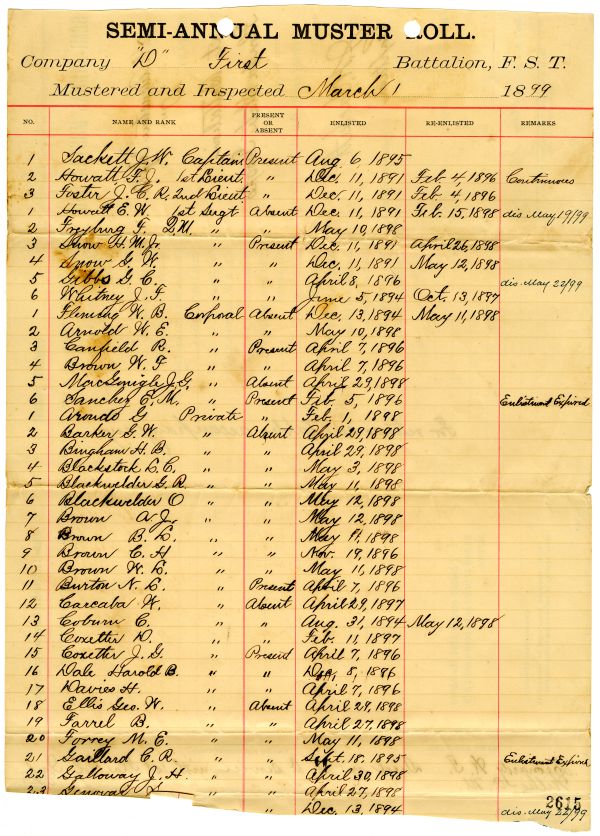 SEMI-ANNUAL MUSTER ROLL.
Company "D" First Battalion, F. S. T.
Mustered and Inspected March 1 1899
NO. NAME AND RANK PRESENT OR ABSENT ENLISTED RE-ENLISTED REMARKS
1 Sackett J. W. Captain Present Aug 6 1895
2 Howatt F. J. 1st Lieut " Dec. 11, 1891 Feb 4, 1896 Continuous
3 Foster J. C. R. 2nd Lieut " Dec. 11, 1891 Feb 4, 1896
1 Howatt E. W. 1st Sergt Absent Dec. 11, 1891 Feb. 15, 1898 dis. May 19/99
2 Freyburg F. Q.M. " " May 10, 1898
3 Snow H. M. Jr. " Present Dec. 11, 1891 April 26, 1898
4 Snow G. W. " " Dec. 11, 1891 May 12, 1898
5 Gibbs G. C. " " April 8, 1896 dis. May 22/99
6 Whitney J. F. " " June 5, 1894 Oct. 13, 1897
1 Fleming W. B. Corporal Absent Dec. 13, 1894 May 11, 1898
2 Arnold W. E. " " May 10, 1898
3 Canfield R. " Present April 7, 1896
4 Brown W. F " " April 7, 1896
5 MacGonigle J. G. " Absent April 29, 1898
6 Sanchez E. M. " Present Feb. 5, 1896 Enlistment Expired
1 G Private " Feb. 1, 1898
2 Barker G. W. " Absent April 29, 1898
3 Bingham H. B. " " April 29, 1898
4 Blackstock L. C. " " May 3, 1898
5 Blackwelder G. R. " " May 11, 1898
6 Blackwelder O " " May 12, 1898
7 Brown A. J. " " May 12, 1898
8 Brown B. L. " " May 11, 1898
9 Brown C. H " " Nov. 19, 1896
10 Brown W. L. " " May 11, 1898
11 Burton N. L. " Present April 7, 1896
12 Carcaba W. " Absent April 29, 1897
13 Coburn C. " " Aug. 31, 1894 May 12, 1898
14 Coxetter D. " " Feb. 11, 1897
15 Coxetter J. G. " Present April 7, 1896
16 Dale Harold B. " " Dec, 8, 1896
17 Davies H. " " April 7, 1896
18 Ellis Geo. W. " Absent April 29, 1898
19 Farrel B. " " April 27, 1898
20 M. E. " " May 11, 1898
21 Gaillard C. R. " " Sept. 18, 1895 Enlistment Expired
22 Galloway J. H. " " April 30, 1898
23 Genovar " Dec. 13, 1894 dis. May 22/99
2615